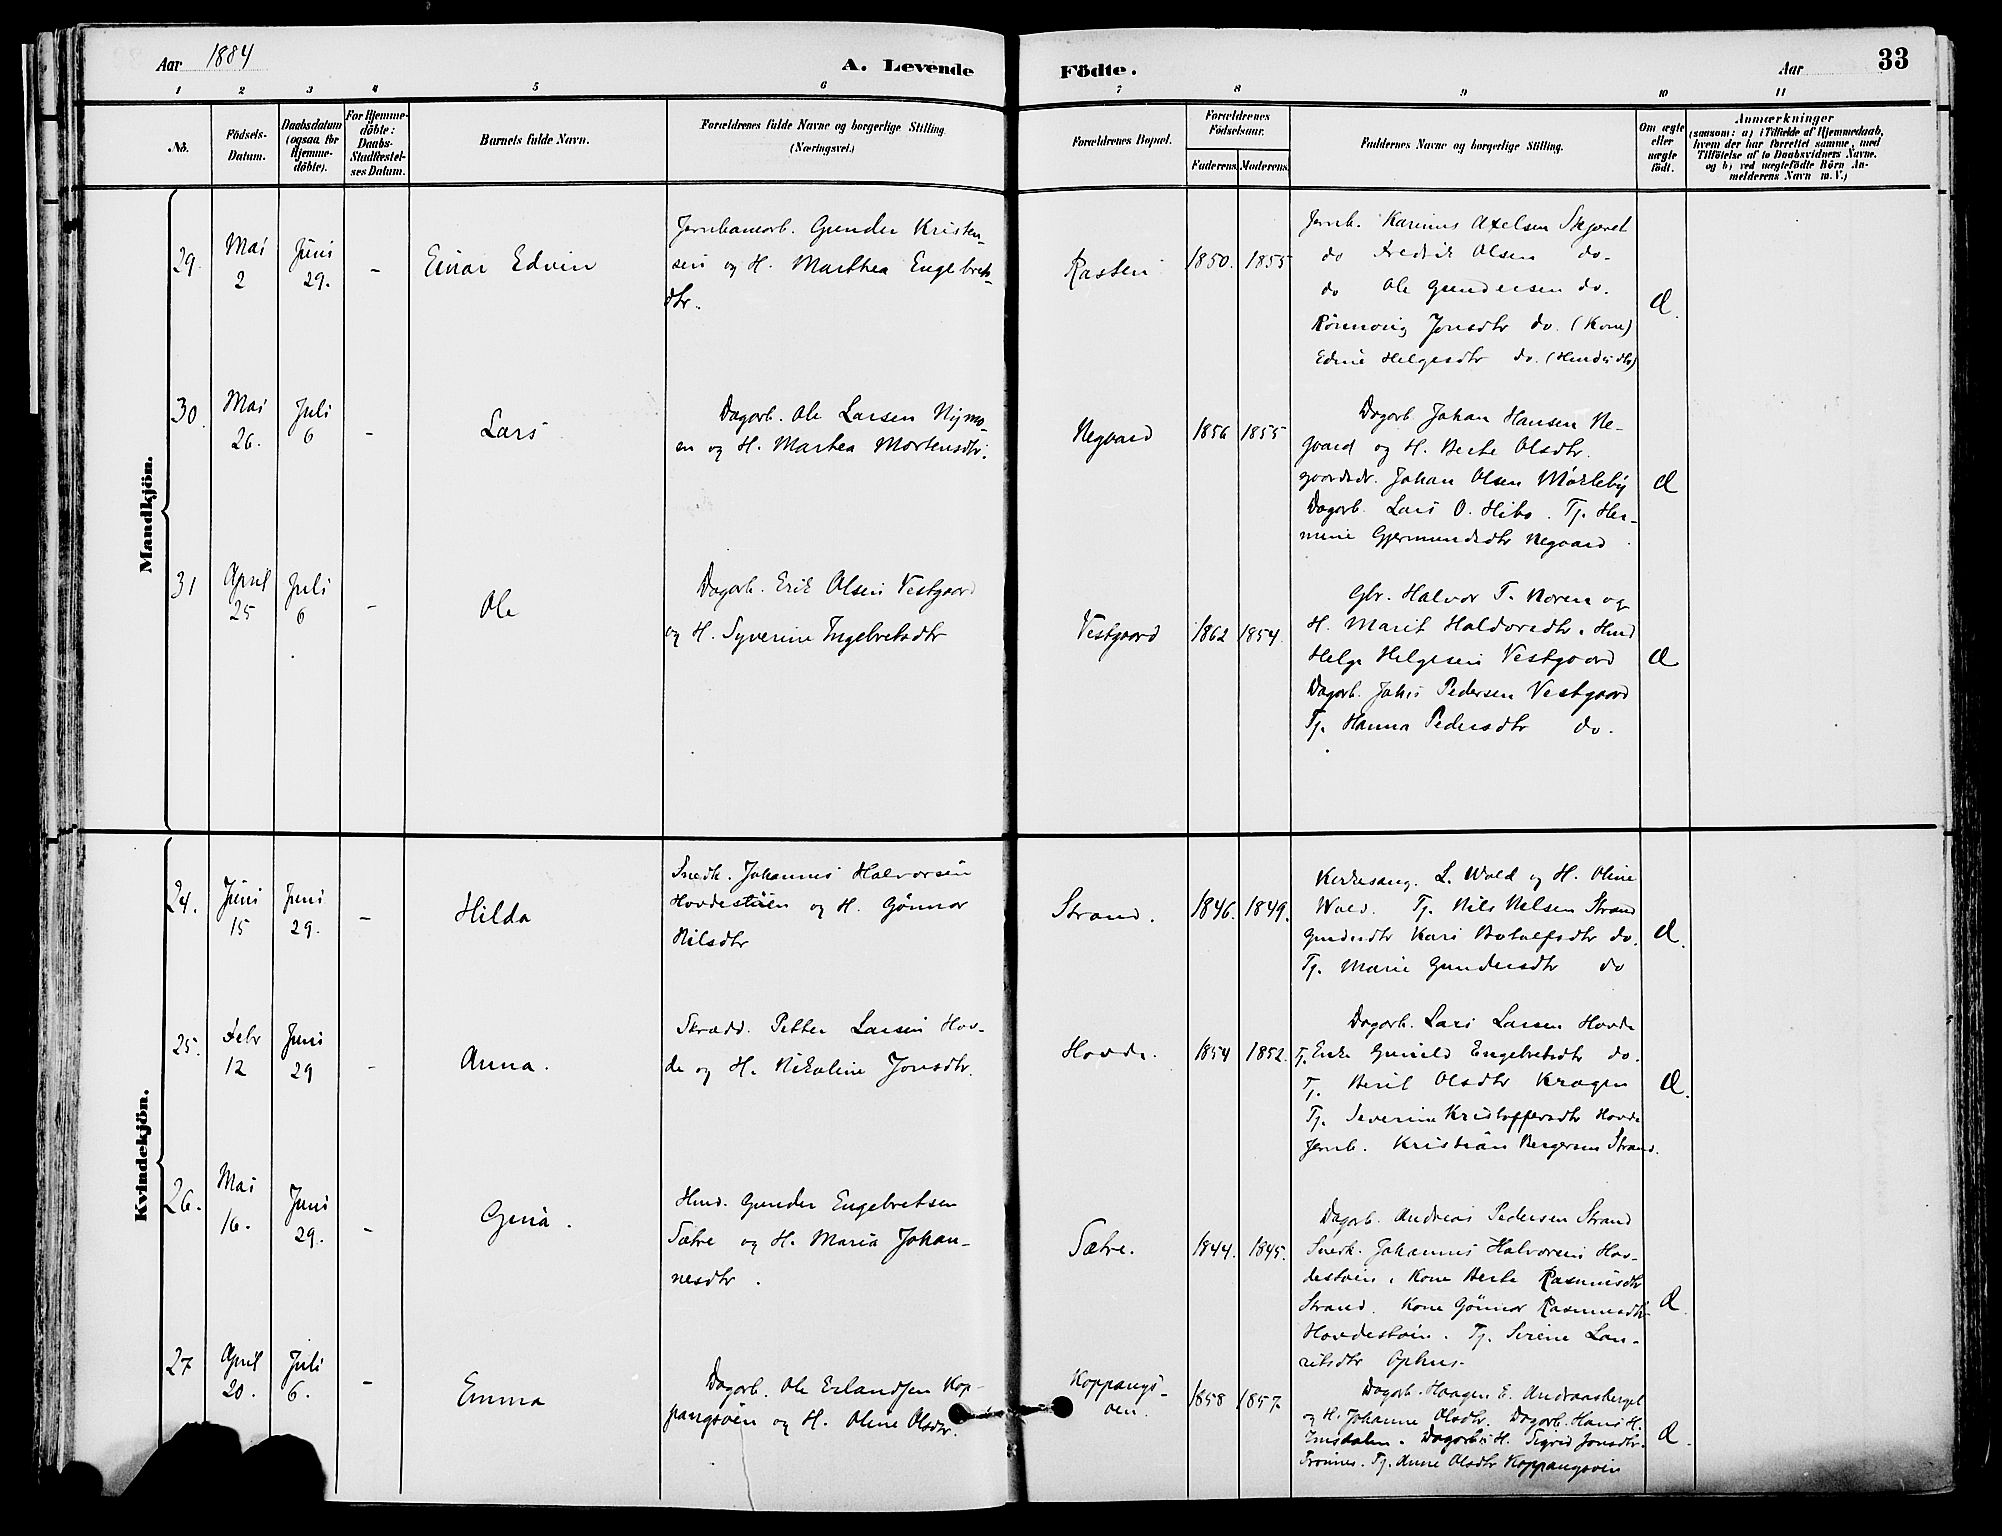 Aar 1884
A. Levende
Födte.
Aar
33
1 2 3 4 5 6 7 8 9 10 11
No.
Födsels-
Datum.
Daabsdatum
(ogsaa for
Hjemme-
döbte).
For Hjemme-
döbte:
Daabs-
Stadfæstel-
ses Datum.
Barnets fulde Navn.
Forældrenes fulde Navne og borgerlige Stilling.
(Næringsvei.)
Forældrenes Bopæl.
Forældrenes
Födselsaar.
Faderens. Moderens.
Faddernes Navne og borgerlige Stilling.
Om ægte
eller
uægte
födt.
Anmærkninger
(saasom: a) i Tilfælde af Hjemmedaab,
hvem der har forrettet samme, med
Tilföielse af to Daabsvidners Navne,
og b) ved uægtefödte Börn An-
melderens Navn m. V.)
Mandkjön.
29. Mai 2 Juni 29. - Einar Edvin
Jernbanearb. Gunder Kristen-
sen og H. Marthea Engebrets-
dtr.
Rasten 1850. 1855
Jernb. Karinus Axelsen
do Fredrik Olsen do.
do Ole Gundersen do.
Rönnoug Jonsdtr do. (Kone)
Edine Helgesdtr do.
Æ.
30. Mai 26. Juli 6 - Lars
Dagarb. Ole Larsen Nymo-
en og H. Marthea Mortensdtr.
Negaard 1856 1855
Dagarb. Johan Hansen Ne-
gaard og H. Berte Olsdtr.
Johan Olsen Mökleby
Dagarb. Lars O. Hibo. Tj. Her-
mine Gjermundsdtr Negaard.
Æ
31 April 25 Juli 6 - Ole
Dagarb. Erik Olsen Vestgaard
og H. Syverine Ingebretsdtr
Vestgaard 1862 1854.
Gbr. Halvor T. Noren og
H. Marit Haldorsdtr. Hmd
Helge Helgesen Vestgaard
Dagarb. Johs Pedersen Vestgaard
Tj. Hanna Pedersdtr do.
Æ
Kvindekjön.
24. Juni 15 Juni 29. - Hilda
Snedk. Johannes Halvorsen
Hovdestöen og H. Gönnor
Nilsdtr
Strand. 1846. 1849.
Kirkesang. L. Wold og H. Oline
Wold. Tj. Nils Nelsen Strand
Kari Botolfsdtr do.
Tj. Marie Gundersdtr do
Æ.
25. Febr 12 Juni 29 - Anna.
Skrædd. Petter Larsen Hov-
de og H. Nikoline Jonsdtr.
Hovde. 1854 1852.
Dagarb. Lars Larsen Hovde
Enke Gunild Engebretsdtr do.
Tj. Berit Olsdtr Kragen
Tj. Severine Kristoffersdtr Hovde
Jernb. Kristian Bergersen Strand.
Æ.
26. Mai 16. Juni 29. - Gina.
Hmd. Gunder Engebretsen
Sætre og H. Maria Johan-
nesdtr.
Sætre. 1844. 1845.
Dagarb. Andreas Pedersen Strand
Snedk. Johannes Halvorsen Hov-
destöen, Kone Berte Rasmusdtr
Strand. Kone Gönnor Rasmusdtr
Hovdestöen. Tj. Serine Lau-
ritsdtr Ophus.
Æ.
27 April 20. Juli 6. - Emma
Dagarb. Ole Erlandsen Kop-
pangsöen og H. Oline Olsdtr.
Koppangs-
öen. 1858 1857.
Dagarb. Haagen E. Andraasberget
og H. Johanne Olsdtr. Dagarb. Hans H.
Imsdalen. H. Sigrid Jonsdtr.
Trönnes. Tj. Anne Olsdtr Koppangsöen
Æ.